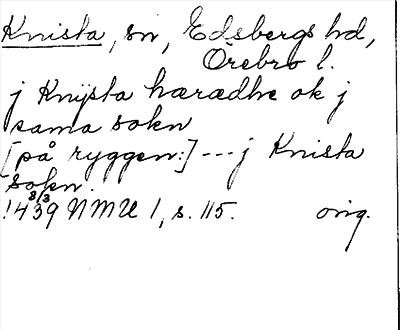 Knista, sn, Edsbergs hd,
Örebro l.
j Knysta hæradhe ok j
sama sokn
[på ryggen:] --- j Knista
sokn.
8/3
1439 NMU 1, s. 115. orig.